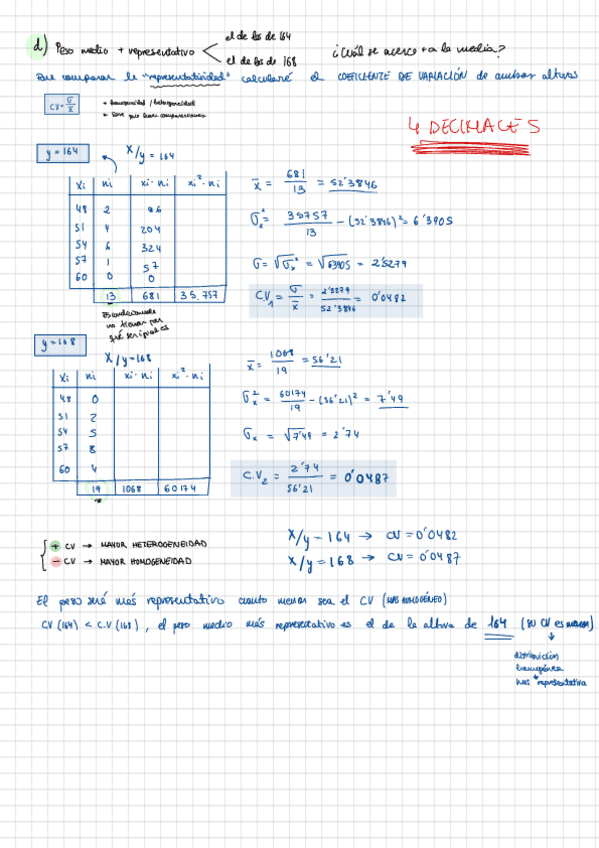 d) Peso medio + representativo
el de los de 164
el de los de 168
¿Cuál se acerca + a la media?
Para comparar la "representatividad" calcularé el COEFICIENTE DE VARIACIÓN de ambas alturas
CV = σ/x̄
+ homogeneidad / heterogeneidad
+ Sirve para hacer comparaciones
4 DECIMALES
y = 164
X/y = 164
xi ni xi·ni xi²·ni
48 2 96
51 4 204
54 6 324
57 1 57
60 0 0
13 681 35.757
Es condicionada
no tienen por
qué ser iguales
x̄ = 681/13 = 52'3846
σx² = 35757/13 - (52'3846)² = 6'3905
σ = √σx² = √6'3905 = 2'5279
C.V₁ = σ/x̄ = 2'5279/52'3846 = 0'0482
y = 168
X/y=168
xi ni xi·ni xi²·ni
48 0
51 2
54 5
57 8
60 4
19 1068 60174
x̄ = 1068/19 = 56'21
σx² = 60174/19 - (56'21)² = 7'49
σx = √7'49 = 2'74
C.V₂ = 2'74/56'21 = 0'0487
+ CV → MAYOR HETEROGENEIDAD
- CV → MAYOR HOMOGENEIDAD
X/y = 164 → CV = 0'0482
X/y = 168 → CV = 0'0487
El peso será más representativo cuanto menor sea el CV (MÁS HOMOGÉNEO)
CV (164) < C.V (168), el peso medio más representativo es el de la altura de 164 (su CV es menor)
distribución
homogénea
más representativa